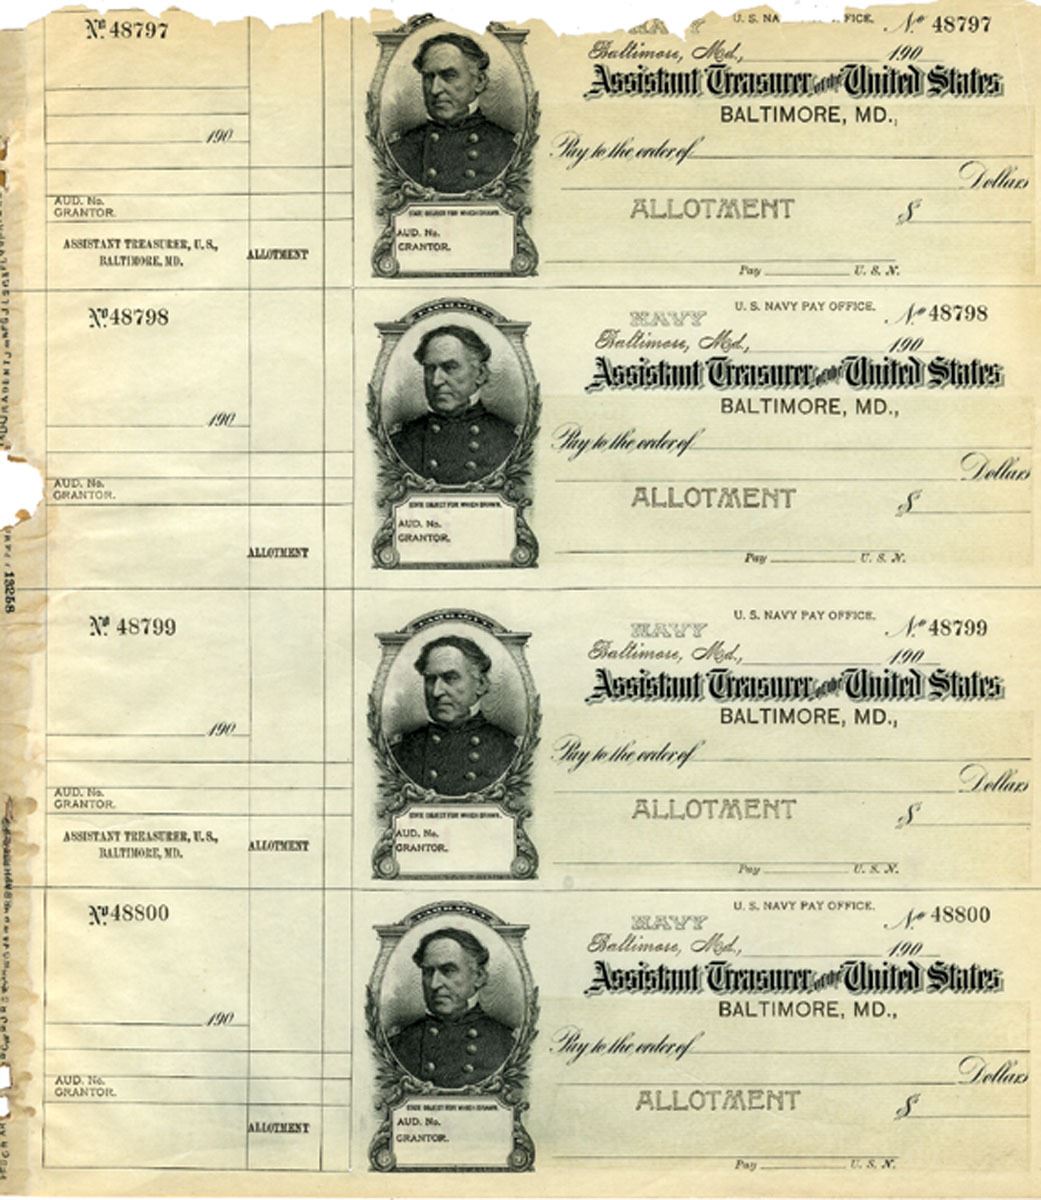 No 48797
190
AUD. No.
GRANTOR.
ASSISTANT TREASURER, U.S.,
BALTIMORE, MD.
ALLOTMENT
STATE OBJECT FOR WHICH DRAWN.
AUD. No.
GRANTOR.
No 48797
Baltimore, Md., 190
Assistant Treasurer of the United States
BALTIMORE, MD.,
Pay to the order of
Dollars
ALLOTMENT $
Pay U. S. N.
No 48798
190
AUD. No.
GRANTOR.
ALLOTMENT
FARRAGUT
STATE OBJECT FOR WHICH DRAWN.
AUD. No.
GRANTOR.
NAVY U. S. NAVY PAY OFFICE. No 48798
Baltimore, Md., 190
Assistant Treasurer of the United States
BALTIMORE, MD.,
Pay to the order of
Dollars
ALLOTMENT $
Pay U. S. N.
No 48799
190
AUD. No.
GRANTOR.
ASSISTANT TREASURER, U.S.,
BALTIMORE, MD.
ALLOTMENT
FARRAGUT
STATE OBJECT FOR WHICH DRAWN.
AUD. No.
GRANTOR.
NAVY U. S. NAVY PAY OFFICE. No 48799
Baltimore, Md., 190
Assistant Treasurer of the United States
BALTIMORE, MD.,
Pay to the order of
Dollars
ALLOTMENT $
Pay U. S. N.
No 48800
190
AUD. No.
GRANTOR.
ALLOTMENT
FARRAGUT
STATE OBJECT FOR WHICH DRAWN.
AUD. No.
GRANTOR.
NAVY U. S. NAVY PAY OFFICE. No 48800
Baltimore, Md., 190
Assistant Treasurer of the United States
BALTIMORE, MD.,
Pay to the order of
Dollars
ALLOTMENT $
Pay U. S. N.
13258